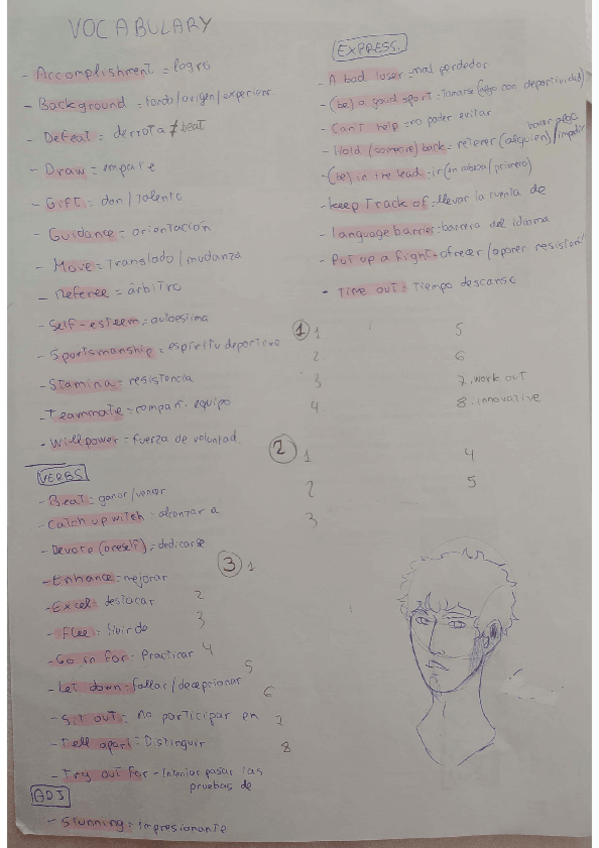 VOCABULARY
- Accomplishment = logro
- Background = fondo/origen/experienc.
- Defeat = derrota ≠ beat
- Draw = empate
- Gift = don/talento
- Guidance = orientación
- Move = Translado/mudanza
- Referee = árbitro
- Self-esteem = autoestima
- Sportsmanship = espíritu deportivo
- Stamina = resistencia
- Teammate = compañ. equipo
- Willpower = fuerza de voluntad.
VERBS
- Beat = ganar/vencer
- Catch up witch = alcanzar a
- Devote (oneself) = dedicarse
- Enhance = mejorar
- Excel = destacar
- Flee = huir de
- Go in for = Practicar
- Let down = fallar/decepcionar
- Sit out = no participar en
- Tell apart = Distinguir
- Try out for - Intentar pasar las
pruebas de
ADJ
- Stunning = impresionante
EXPRESS.
- A bad loser = mal perdedor
- (be) a good sport = tomarse (algo con deportividad)
- Can't help = no poder evitar
- Hold (someone) back = retener (alguien)/impedir
hacer algo
- (be) in the lead = ir (en cabeza/primero)
- keep Track of = llevar la cuenta de
- language barrier = barrera del idioma
- Put up a fight = ofrecer/oponer
- Time out = Tiempo descanso
1 1 5
2 6
3 7. work out
4 8. innovative
2 1 4
2 5
3
3 1
2
3
4
5
6
7
8